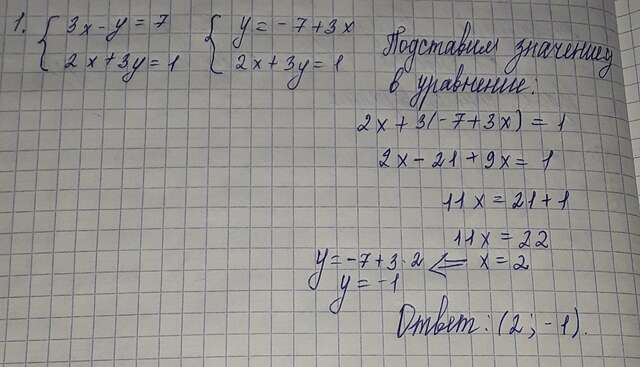 1. { 3x - y = 7 { y = -7 + 3x
2x + 3y = 1 2x + 3y = 1
Подставим значение y
в уравнение:
2x + 3(-7 + 3x) = 1
2x - 21 + 9x = 1
11x = 21 + 1
11x = 22
y = -7 + 3 · 2 ⇐ x = 2
y = -1
Ответ: (2; -1).